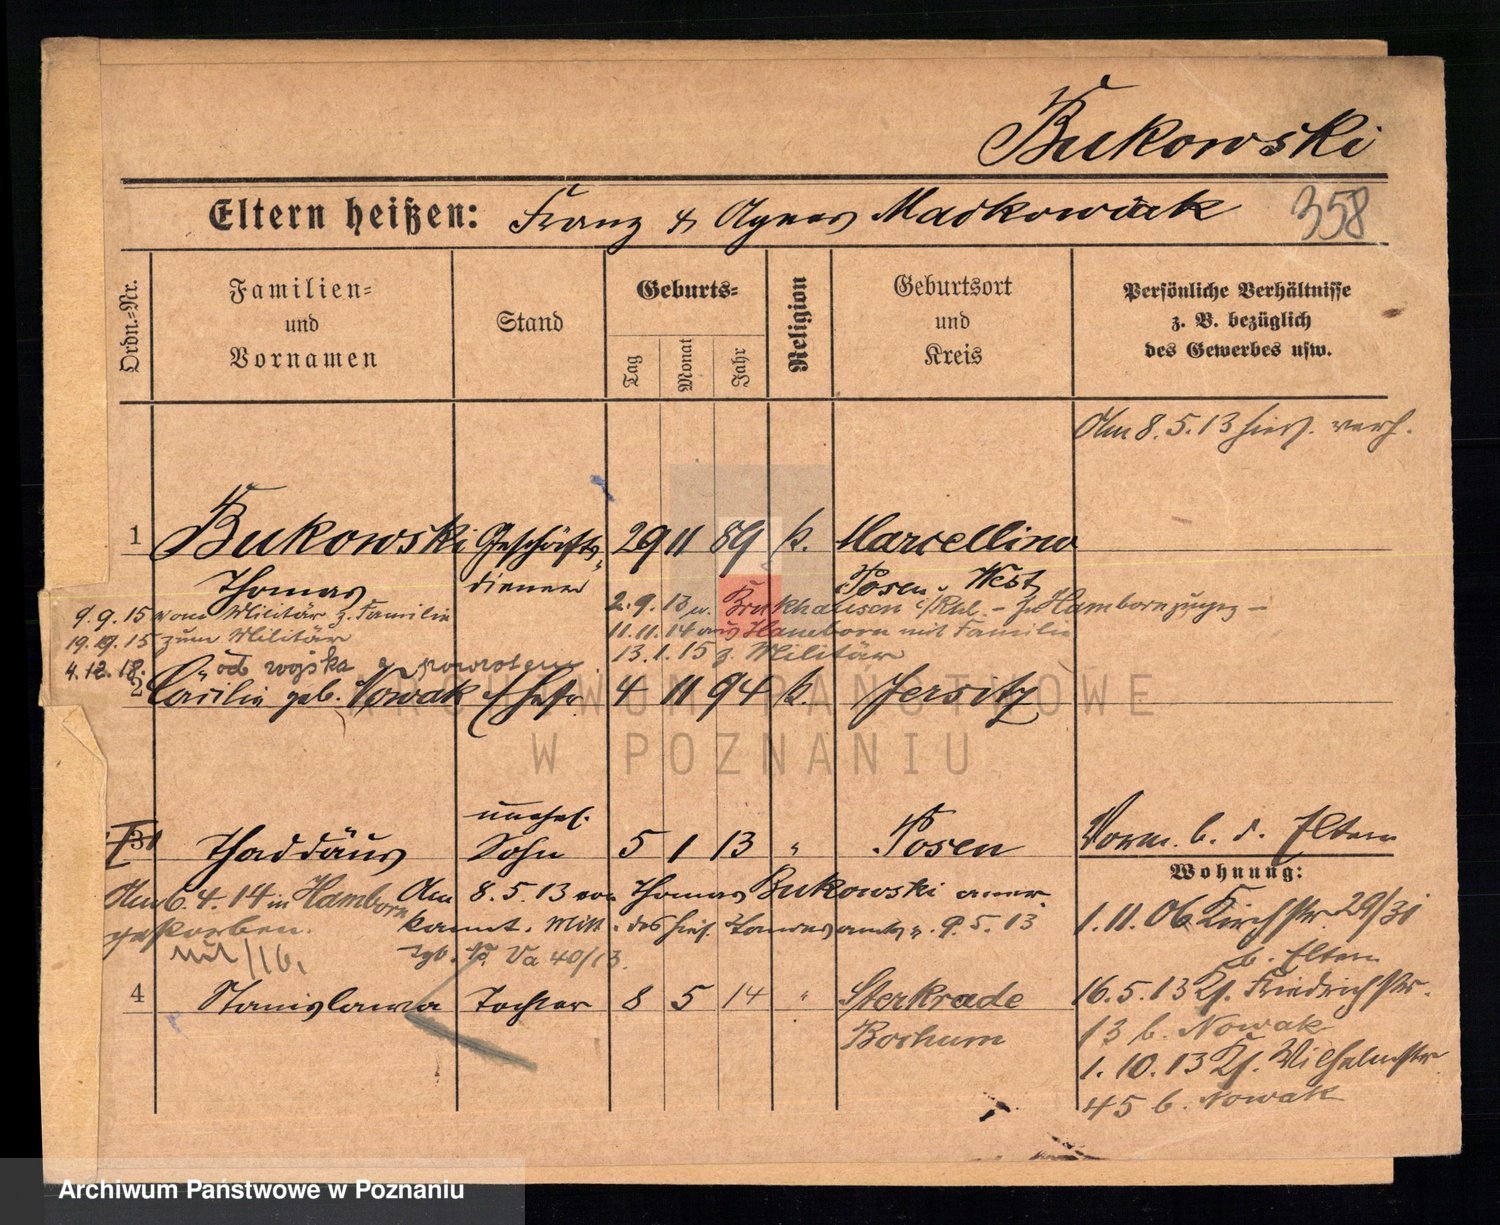 Bukowski
Eltern heißen: Franz & Agnes Maćkowiak 358
Ordn.-Nr.
Familien- und Vornamen
Stand
Geburts-
Tag Monat Jahr
Religion
Geburtsort und Kreis
Persönliche Verhältnisse
z. B. bezüglich
des Gewerbes usw.
Am 8. 5. 13 hier verh.
1 Bukowski Geschäfts- 29 11 89 k. Marcellino
Thomas diener Posen West
9. 9. 15 vom Militär z. Familie
2. 9. 13 n. Bruckhausen Rhl. - Hamborn
19. 15 zum Militär
11. 11. 14 aus Hamborn mit Familie
13. 1. 15 z. Militär
4. 12. 18. od wojska
2 Cäcilie geb. Nowak Ehefr. 4 11 94 k. Jersitz
3 Thaddäus unehel. Sohn 5 1 13 " Posen
Vorm. b. d. Eltern
Wohnung:
Am 6. 4. 14 in Hamborn
gestorben.
Am 8. 5. 13 von Thomas Bukowski aner-
kannt. Mitt. des hies. Standesamts v. 9. 5. 13
Tgb. Va 40/13.
1. 11. 06 Kirchstr. 29/31
b. Eltern
4 Stanislawa Tochter 8 5 14 " Sterkrade
Bochum
16. 5. 13 Friedrichstr.
13 b. Nowak
1. 10. 13 Wilhelmstr.
45 b. Nowak
ARCHIWUM PAŃSTWOWE
W POZNANIU
Archiwum Państwowe w Poznaniu